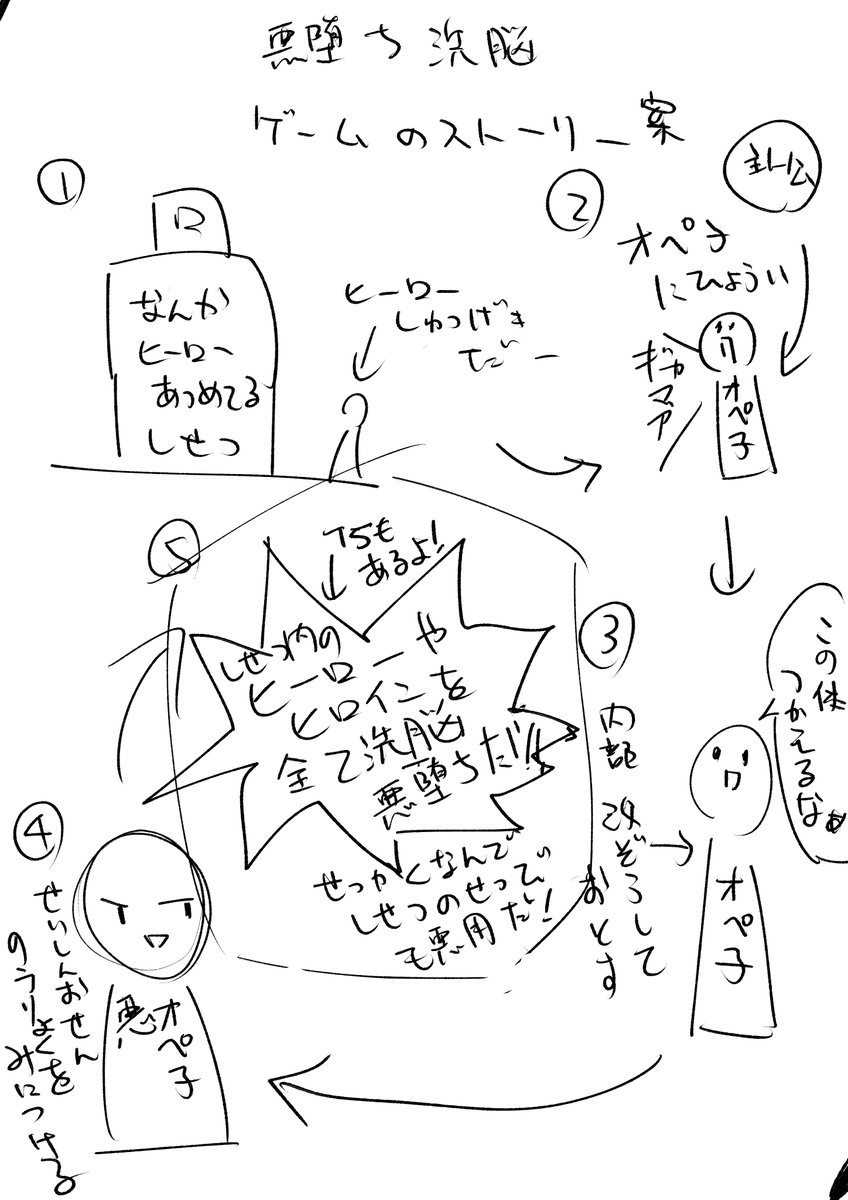 悪堕ち洗脳
ゲームのストーリー案
①
ロ
なんか
ヒーロー
あつめてる
しせつ
ヒーロー
しゅつげき
だー
②
オペ子
にひょうい
ギャ
マア
オペ子
③
内部改ぞうして
おとす
この体
つかえるなぁ
オペ子
④
せいしんおせん
のうりょくを
みにつける
悪
オペ子
⑤
TSも
あるよ!
しせつ内の
ヒーローや
ヒロインを
全て洗脳
悪堕ちだ!!
せっかくなんで
しせつのせつび
も悪用だ!